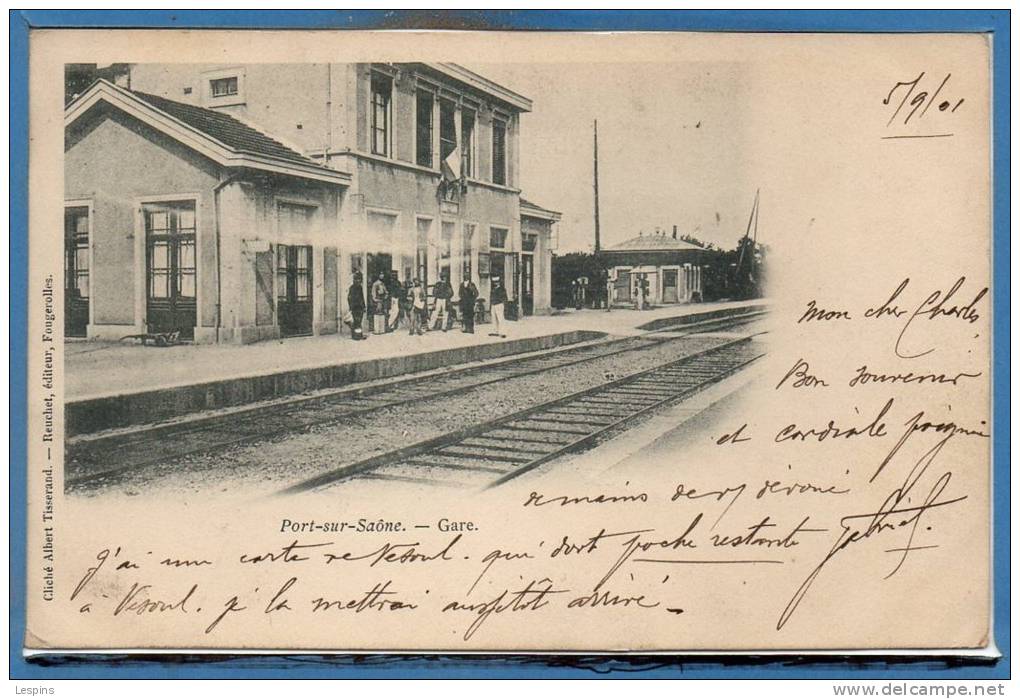 5/9/01
mon cher Charles,
Bon souvenir
et cordiale poignée
de mains de ton dévoué
Gabriel.
Port-sur-Saône. — Gare.
J'ai une carte de Vesoul. qui dort poche restante
à Vesoul. je la mettrai aussitôt arrivé —
Cliché Albert Tisserand. — Reuchet, éditeur, Fougerolles.
Lespins
www.delcampe.net